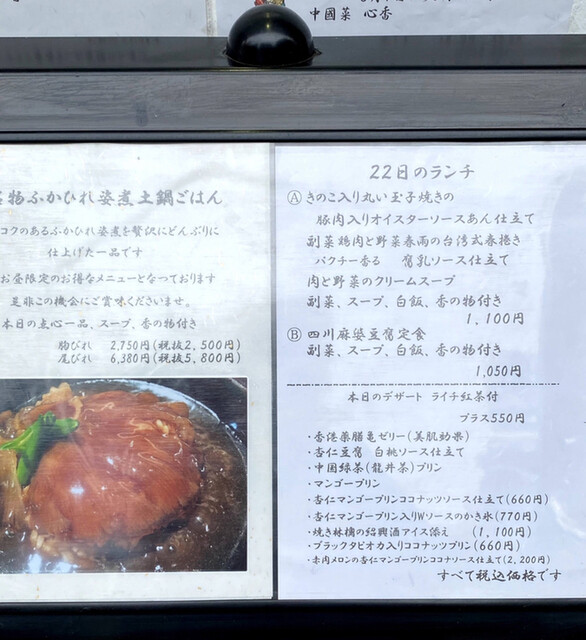 中國菜 心香
名物ふかひれ姿煮土鍋ごはん
コクのあるふかひれ姿煮を贅沢にどんぶりに
仕上げた一品です
お昼限定のお得なメニューとなっております
是非この機会にご賞味くださいませ。
本日の点心一品、スープ、香の物付き
胸びれ 2,750円(税抜2,500円)
尾びれ 6,380円(税抜5,800円)
22日のランチ
Ⓐきのこ入り丸い玉子焼きの
豚肉入りオイスターソースあん仕立て
副菜鶏肉と野菜春雨の台湾式春捲き
パクチー香る 腐乳ソース仕立て
肉と野菜のクリームスープ
副菜、スープ、白飯、香の物付き
1,100円
Ⓑ四川麻婆豆腐定食
副菜、スープ、白飯、香の物付き
1,050円
本日のデザート ライチ紅茶付
プラス550円
・香港薬膳亀ゼリー(美肌効果)
・杏仁豆腐 白桃ソース仕立て
・中国緑茶(龍井茶)プリン
・マンゴープリン
・杏仁マンゴープリンココナッツソース仕立て(660円)
・杏仁マンゴープリン入りWソースのかき氷(770円)
・焼き林檎の紹興酒アイス添え (1,100円)
・ブラックタピオカ入りココナッツプリン(660円)
・赤肉メロンの杏仁マンゴープリンココナソース仕立て(2,200円)
すべて税込価格です